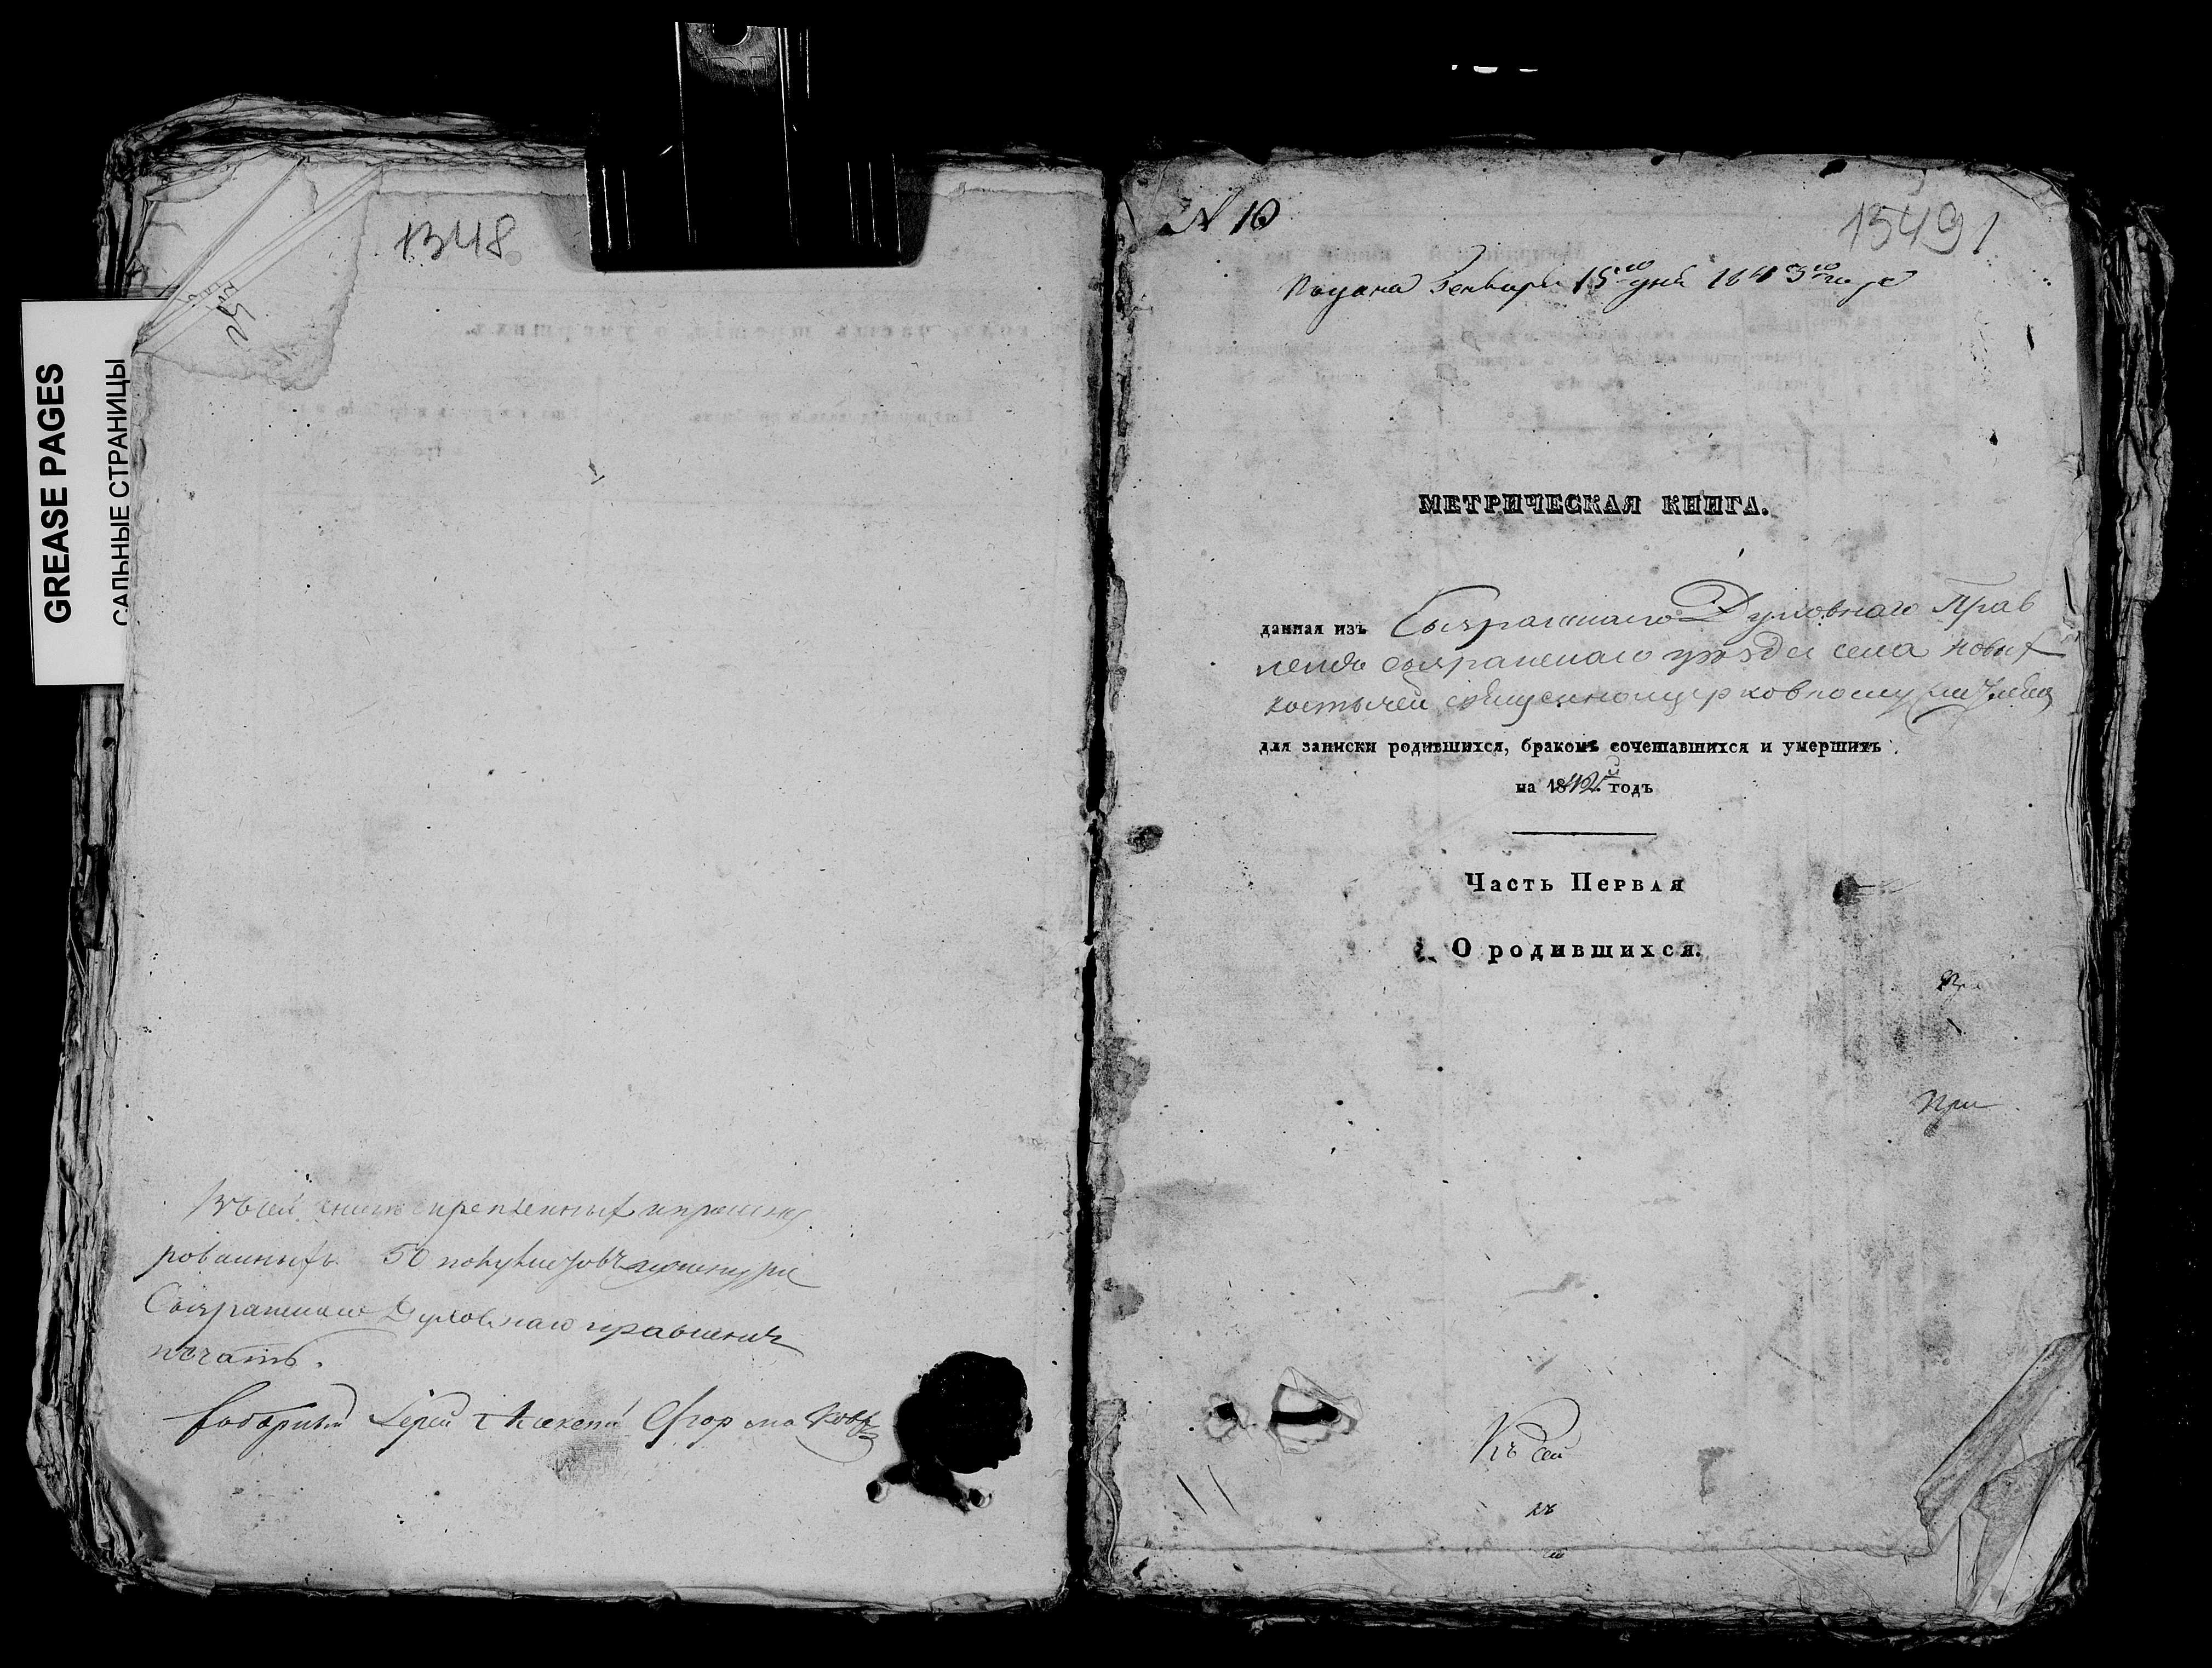 1348
GREASE PAGES
САЛЬНЫЕ СТРАНИЦЫ
Въ сей книгѣ скрепленныхъ и прошну
рованныхъ 50 полулистовъ
Сызранскаго Духовнаго правления
печать.
Соборный Іерей Алексей
N 10
1349 1
Подана Генваря 15го дня 1843го года
МЕТРИЧЕСКАЯ КНИГА.
данная изъ Сызранскаго Духовнаго Прав
ления сызранскаго уѣзда села новыхъ
костычей священноцерковнослужителямъ
для записки родившихся, бракомъ сочетавшихся и умершихъ
на 1842й годъ
Часть Первая
О родившихся.
При
Къ сей